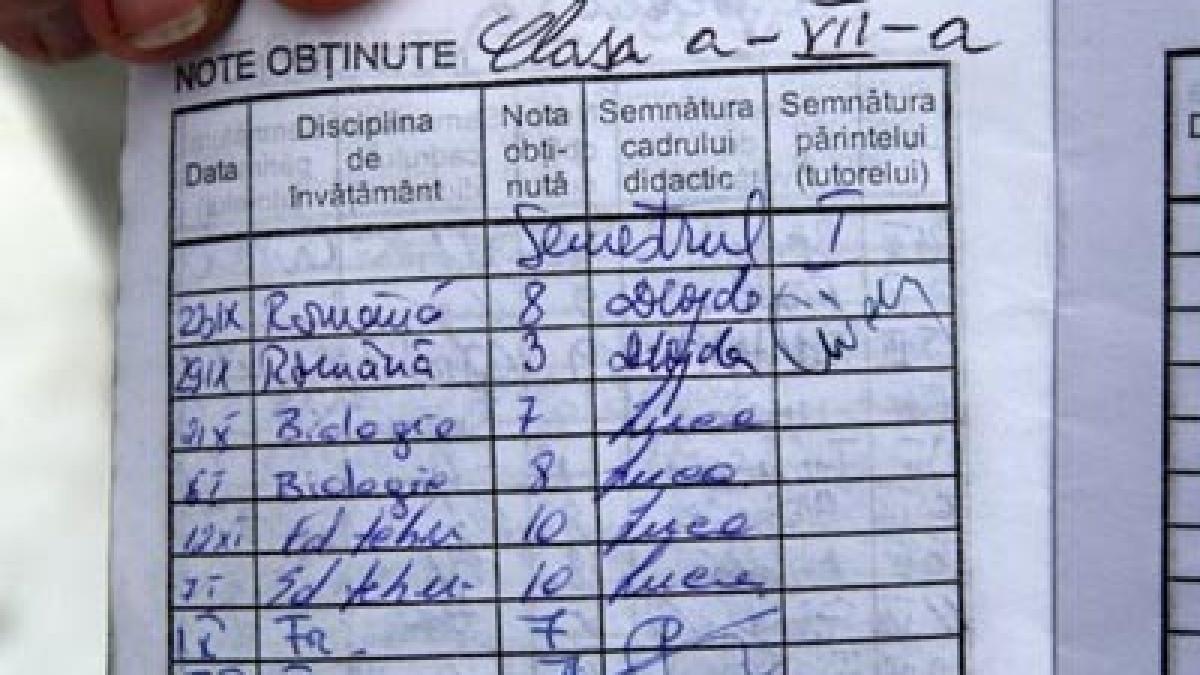 NOTE OBȚINUTE Clasa a-VII-a
Data
Disciplina
de
învățământ
Nota
obți-
nută
Semnătura
cadrului
didactic
Semnătura
părintelui
(tutorelui)
Semestrul I
23IX Română 8
29IX Română 3
Biologie 7 Luca
Biologie 8 Luca
12XI Ed tehn 10 Luca
Ed tehn 10 Luca
Fr. 7